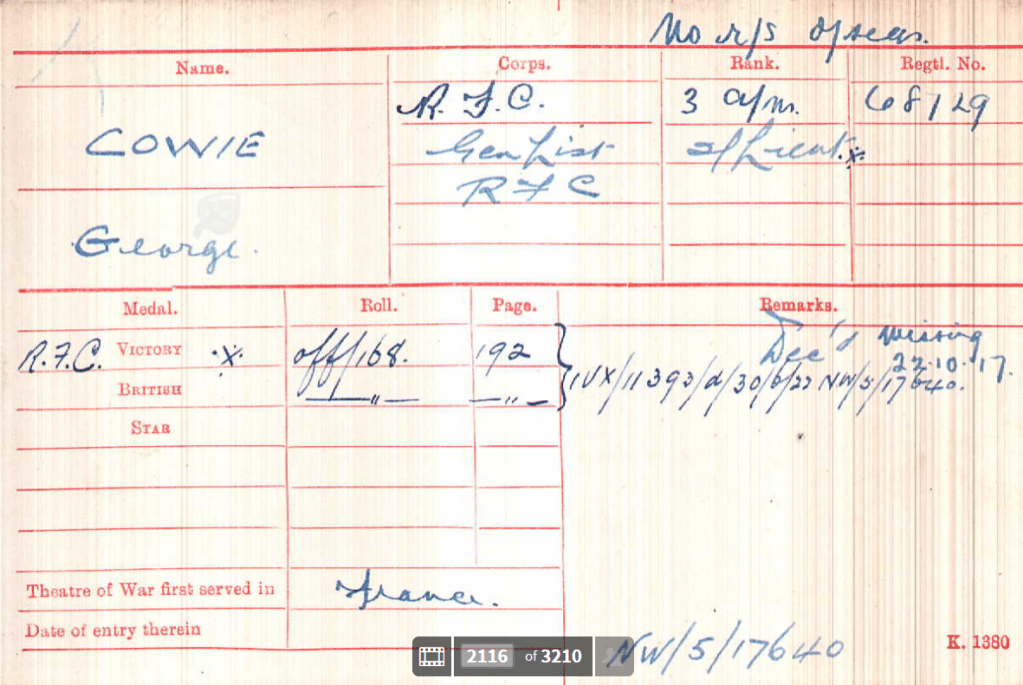 No r/s o/seas.
Name. Corps. Rank. Regtl. No.
R. F. C. 3 a/m. 68729
COWIE Gen List 2/Lieut. x
R F C
George.
Medal. Roll. Page. Remarks.
Dec'd Missing
R.F.C. VICTORY x off/168. 192 22.10.17.
BRITISH —"— —"— IVX/11393/d/30/6/22 NW/5/17640.
STAR
Theatre of War first served in France.
Date of entry therein
NW/5/17640 K. 1380
2116 of 3210